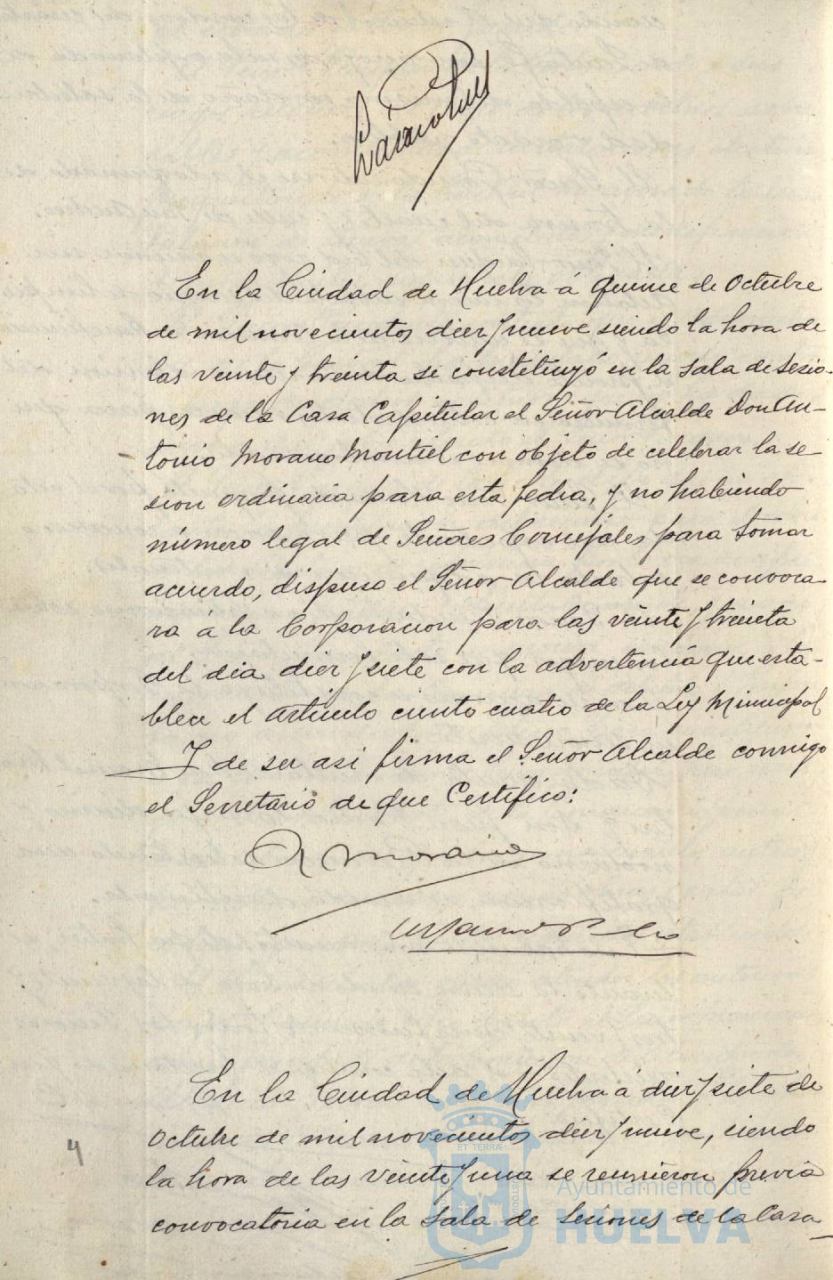 En la Ciudad de Huelva á quince de Octubre
de mil novecientos diez y nueve siendo la hora de
las veinte y treinta se constituyó en la sala de sesio-
nes de la Casa Capitular el Señor Alcalde Don An-
tonio Morano Montiel con objeto de celebrar la se-
sion ordinaria para esta fecha, y no habiendo
número legal de Señores Concejales para tomar
acuerdo, dispuso el Señor Alcalde que se convoca-
ra á la Corporacion para las veinte y treinta
del dia diez y siete con la advertencia que esta-
blece el artículo ciento cuatro de la Ley Municipal
Y de ser asi firma el Señor Alcalde conmigo
el Secretario de que Certifico:
A Morano
En la Ciudad de Huelva á diez y siete de
Octubre de mil novecientos diez y nueve, siendo
la hora de las veinte y una se reunieron previa
convocatoria en la Sala de Sesiones de la Casa
4
ET TERRA
Ayuntamiento de
HUELVA